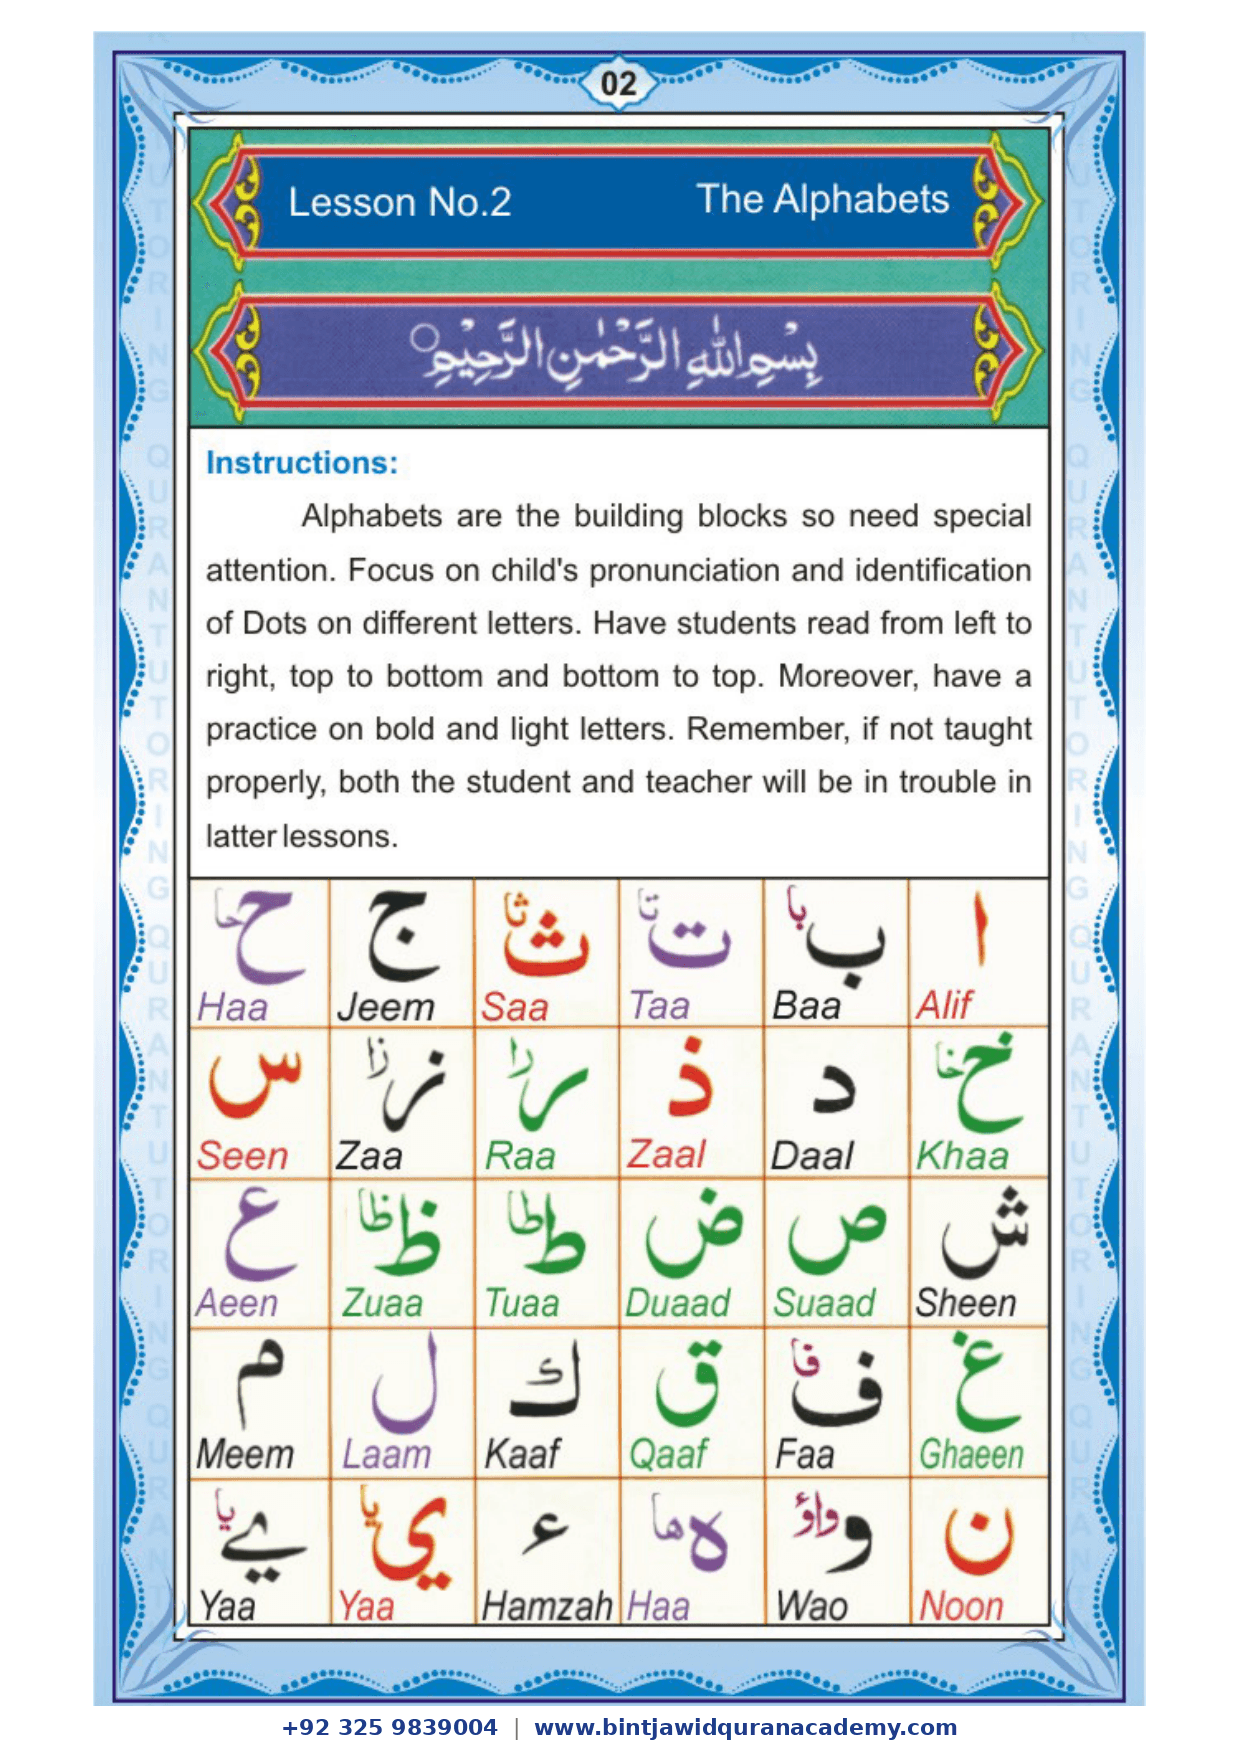 02
Lesson No.2 The Alphabets
بِسْمِ اللهِ الرَّحْمٰنِ الرَّحِيْمِ
Instructions:
Alphabets are the building blocks so need special
attention. Focus on child's pronunciation and identification
of Dots on different letters. Have students read from left to
right, top to bottom and bottom to top. Moreover, have a
practice on bold and light letters. Remember, if not taught
properly, both the student and teacher will be in trouble in
latter lessons.
ا ب با ت تا ث ثا ج ح حا
Alif Baa Taa Saa Jeem Haa
خ خا د ذ ر را ز زا س
Khaa Daal Zaal Raa Zaa Seen
ش ص ض ط طا ظ ظا ع
Sheen Suaad Duaad Tuaa Zuaa Aeen
غ ف فا ق ك ل م
Ghaeen Faa Qaaf Kaaf Laam Meem
ن و واؤ ه ها ء ي يا ے يا
Noon Wao Haa Hamzah Yaa Yaa
QURAN TUTORING QURAN TUTORING QURAN TUTORING
QURAN TUTORING QURAN TUTORING QURAN TUTORING
+92 325 9839004 | www.bintjawidquranacademy.com